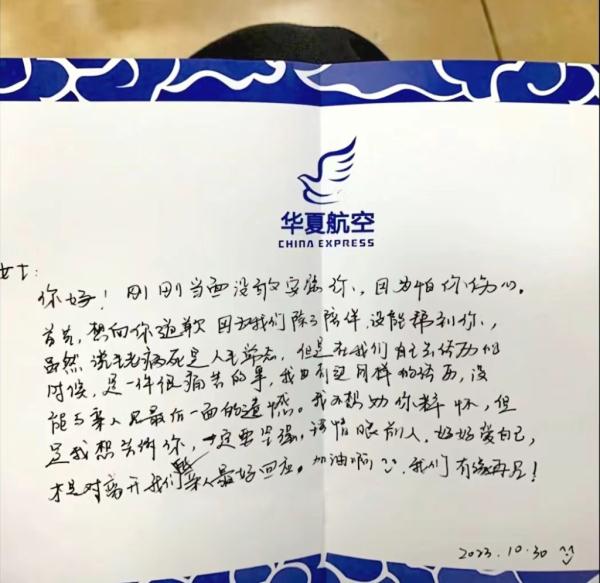 华夏航空
CHINA EXPRESS
女士：
你好！刚刚当面没敢安慰你，因为怕你伤心。
首先，想向你道歉 因为我们除了陪伴，没能帮到你，
虽然说生老病死是人生常态，但是在我们自己去经历的
时候，是一件很痛苦的事，我也有过同样的经历，没
能与亲人见最后一面的遗憾。我不想劝你释怀，但
是我想告诉你，一定要坚强，珍惜眼前人，好好爱自己，
才是对离开我们的亲人最好回应。加油啊，我们有缘再见！
2023.10.30